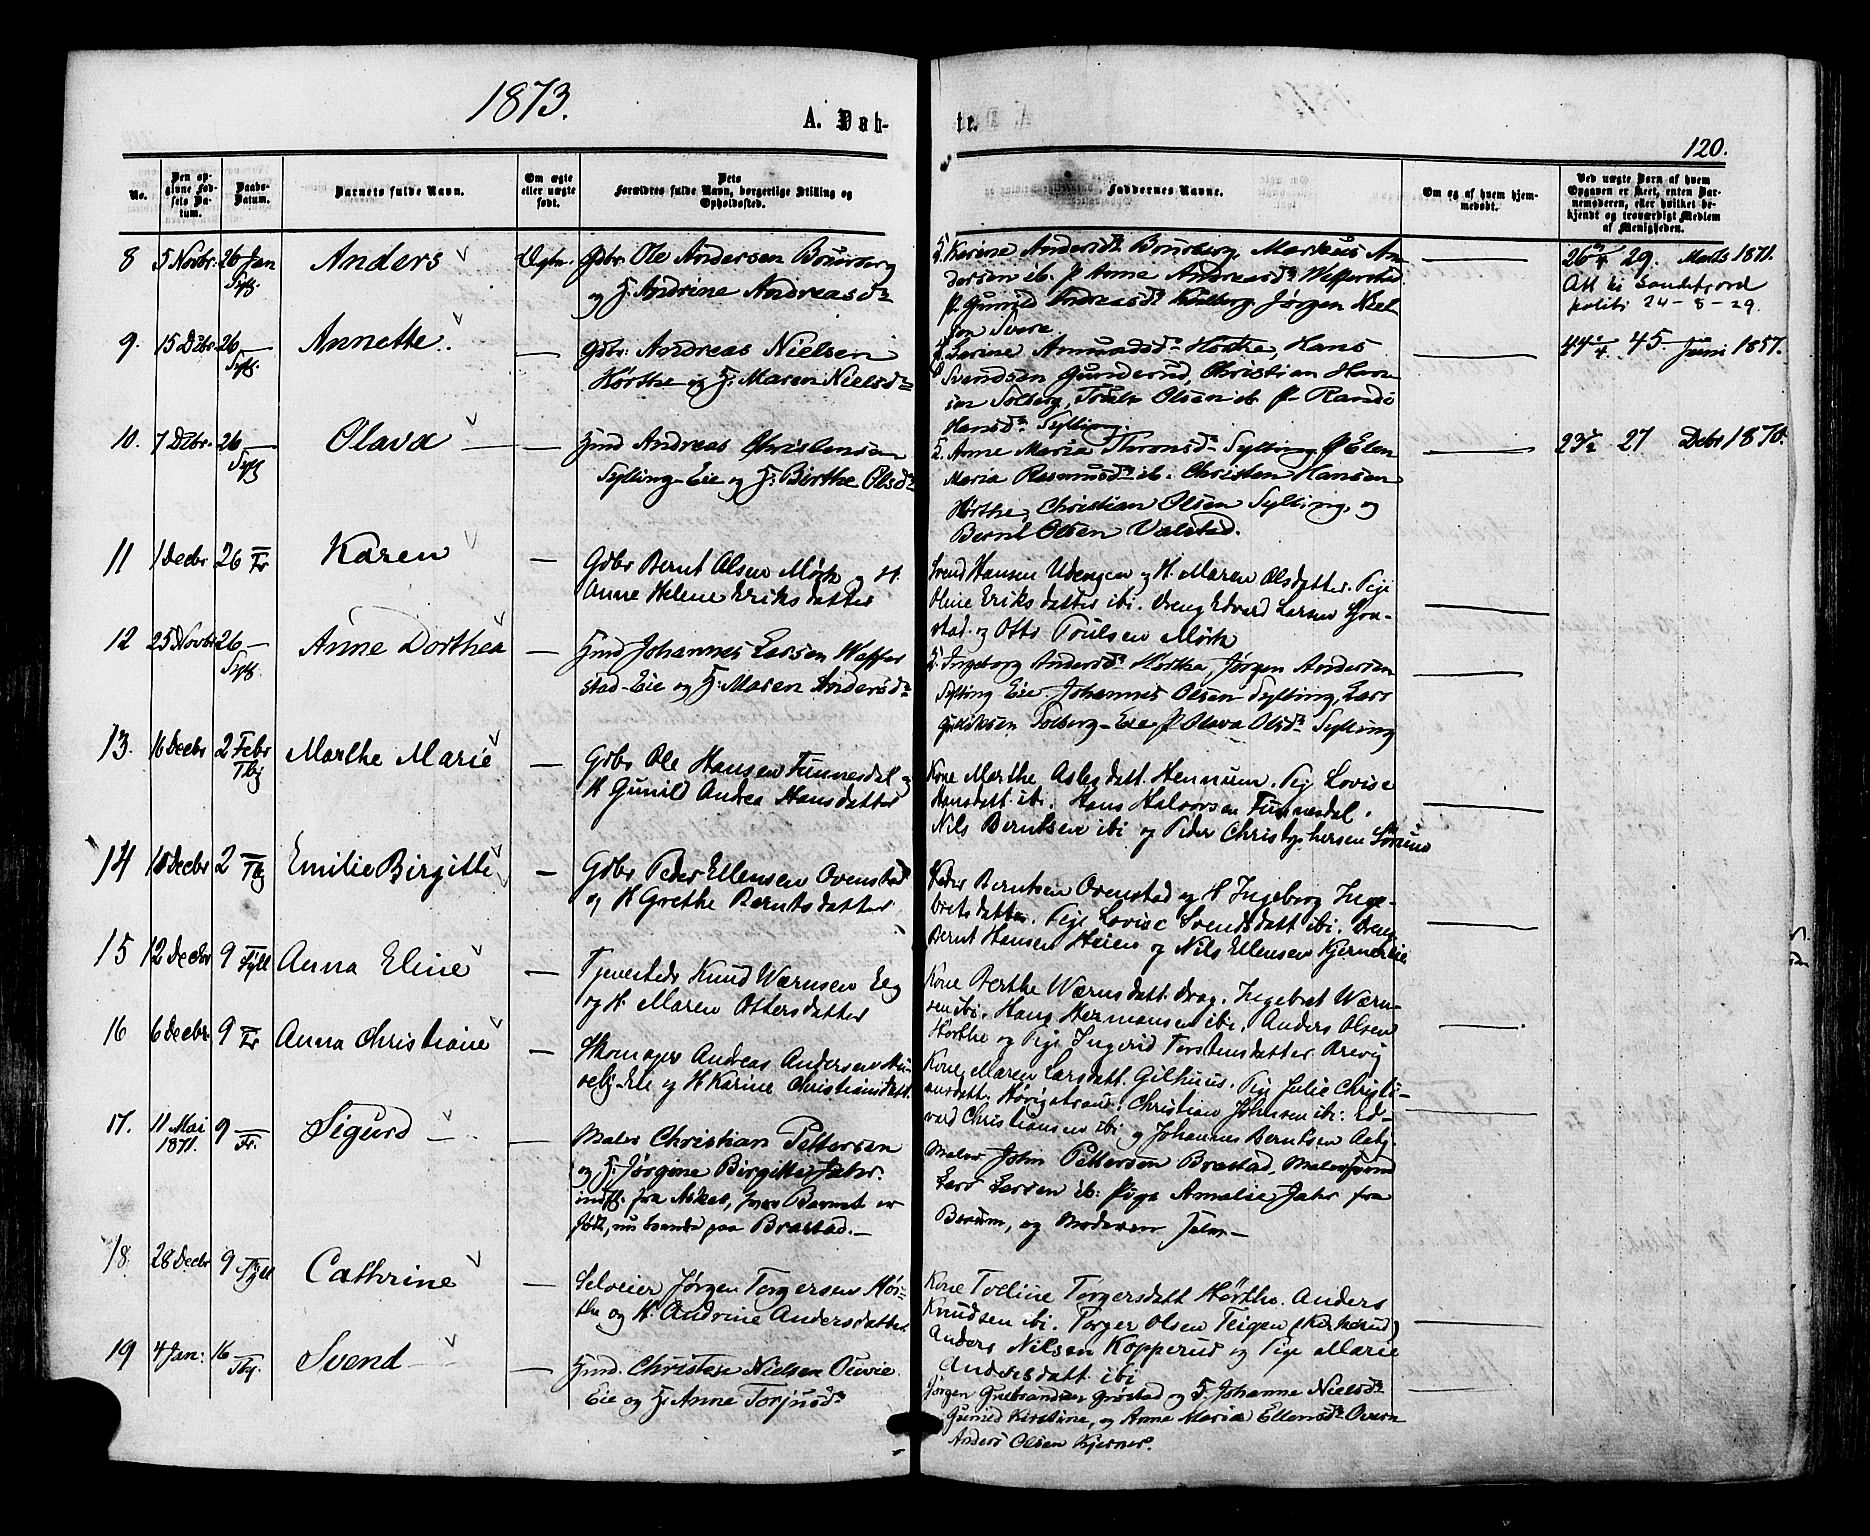 1873.
A. Døb-
te.
120.
No.
Den op-
givne Fød-
sels Da-
tum.
Daabs-
Datum.
Barnets fulde Navn.
Om ægte
eller uægte
født.
Dets
Forældres fulde Navn, borgerlige Stilling og
Opholdssted.
Faddernes Navne.
Om og af hvem hjem-
medøbt.
Ved uægte Børn af hvem
Opgaven er skeet, enten Bar-
nemoderen, eller hvilket be-
kjendt og troværdigt Medlem
af Menigheden.
8 5 Novbr. 26 Jan Sylg. Anders Ægte. Gdbr. Ole Andersen
og H. Andrine Andreasdr
F. Karine Andersdr. Markus An-
dersen ib. P. Anne Andreasdr
P. Gunild Andreasdr Jørgen Niel-
sen
29. Marts 1871.
Att til Sandefjord
politi 24-8-29.
9. 15 Dcbr. 26 — Sylg. Annette. — Gdbr. Andreas Nielsen
Hørthe og H. Maren Nielsdr
Amundsdr Horthe, Hans
Svendsen Gunderud, Christian Han-
sen Solberg, Olsen ib. P. Randi
Hansdr Sylling.
45. Juni 1857.
10. 7 Dcbr. 26 — Sylg Olava — Hmd Andreas Christensen
Sylling-Eie og H. Birthe Olsdr
F. Anne Maria Thronsdr Sylling, P Elen
Maria Rasmusdr ib. Christen Hansen
Hørthe, Christian Olsen Sylling, og
Bernt Olsen Valstad.
27 Debr 1870.
11 1 Decbr 26 — Fr Karen — Gdbr Bernt Olsen Mörk og H.
Anne Helene Eriksdatter
Svend Hansen Udengen og H. Maren Olsdatter. Pige
Oline Eriksdatter ibi. Dreng Edvard Larsen
stad. og Otto Poulsen Mörk
12 25 Novbr 26 — Sylg. Anne Dorthea — Hmd Johannes Larsen Weffer
stad-Eie og H. Maren Andersdr
F. Ingeborg Andersdr Horthe Jørgen Andersen
Sylling Eie Johannes Olsen Sylling, Lars
Solberg-Eie, P Olava Olsdr Sylling
13. 16 Decbr 2 Febr Tbj Marthe Marie — Gdbr Ole Hansen Tunnesdal og
H Gunild Andrea Hansdatter
Kone Marthe Aslesdatt. Hennum. Pige Lovise
Hansdatt. ibi. Hans Halvorsen Tunnesdal.
Nils Berntsen ibi og Peder Christophersen
14 10 Decbr 2 — Tbj Emilie Birgitte — Gdbr Peder Ellensen Ovenstad
og H Grethe Berntsdatter
Peder Berntsen Ovenstad og H Ingeborg Inge-
bretsdatter. Pige Lovise Svendsdatt ibi. Dreng
Bernt Hansen Heien og Nils Ellensen Kjernereie
15 12 Decbr 9 — Syll Anna Eline — Tjenestedr Knud Wærnsen Eeg
og H. Maren Ottersdatter
Kone Berthe Wærnsdatt. Ingebret Wærn-
sen ibi. Hans Hermansen ibi. Anders Olsen
Hörthe og Pige Ingerid Torstensdatter
16 6 Decbr 9 — Fr Anna Christiane — Skomager Andreas Andersen
Eie og H Karine Christiansdatt.
Kone Maren Larsdatt. Gilhuus. Pige Julie Christi-
ansdatt. Christian Johnsen ibi: Ed-
vard Christiansen ibi og Johannes Berntsen
17. 11 Mai
1871. 9 — Fr. Sigurd — — Maler Christian Pettersen
og H. Jørgine Birgitte Jahr.
indfl. fra Asker, hvor Barnet er
født, nu boende paa Brastad.—
Maler John Pettersen Brastad, Maler Svend
Lars Larsen ib: Pige Amalie Jahr fra
Bærum, og Moderen selv—
18. 28 Decbr 9 — Syll Cathrine — Selveier Jørgen Torgersen Hör-
the og H. Andrine Andersdatter
Kone Torgersdatt Hörthe. Anders
Knudsen ibi. Torger Olsen Teigen
Anders Nilsen Kopperud og Pige Marie
Andersdatt. ibi
19 4 Jan: 16 — Tbg. Svend — — Hmd. Christen Nielsen
Eie og H. Anne Torjusdr
Jørgen Gulbrandsen Grøstad og H. Johanne Nielsdr
Gunild Kirstine, og Anne Maria Ellensdr
Anders Olsen Kjerner.